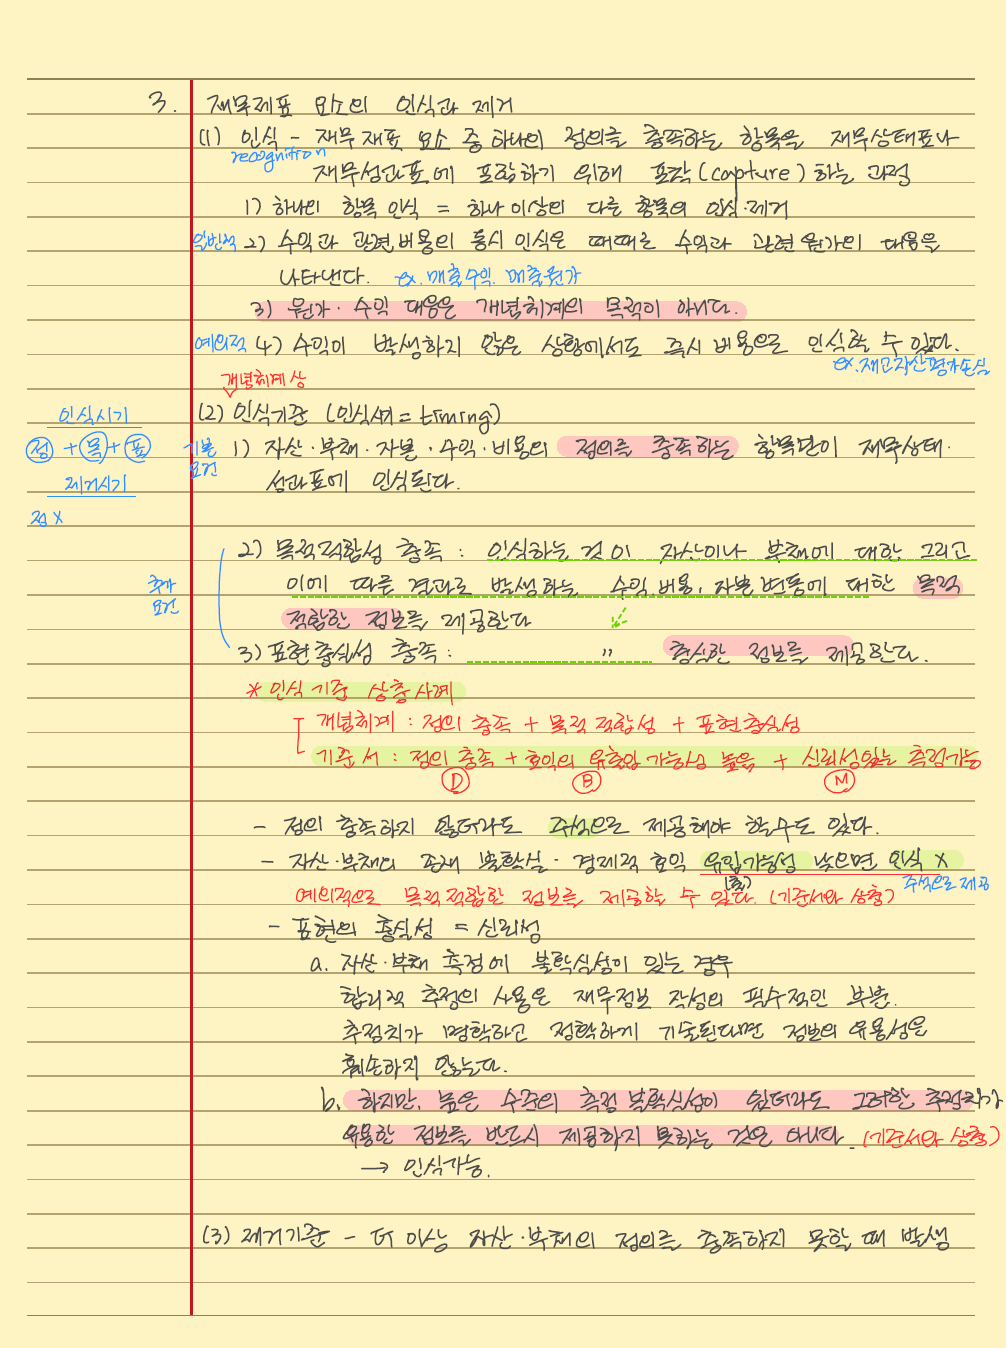 3. 재무제표 요소의 인식과 제거
(1) 인식 - 재무재표 요소 중 하나의 정의를 충족하는 항목을 재무상태표나
recognition
재무성과표에 포함하기 위해 포착(capture)하는 과정
1) 하나의 항목 인식 = 하나 이상의 다른 항목의 인식·제거
일반적 2) 수익과 관련 비용의 동시 인식은 때때로 수익과 관련 원가의 대응을
나타낸다. ex. 매출수익. 매출원가
3) 원가·수익 대응은 개념체계의 목적이 아니다.
예외적 4) 수익이 발생하지 않은 상황에서도 즉시 비용으로 인식할 수 있다.
ex. 재고자산평가손실
개념체계상
(2) 인식기준 (인식시기 = timing)
인식시기
정 + 목 + 표
제거시기
정 X
기본 요건 1) 자산·부채·자본·수익·비용의 정의를 충족하는 항목만이 재무상태·
성과표에 인식된다.
추가 요건
2) 목적적합성 충족 : 인식하는 것이 자산이나 부채에 대한 그리고
이에 따른 결과로 발생하는 수익, 비용, 자본변동에 대한 목적
적합한 정보를 제공한다
3) 표현충실성 충족 : " 충실한 정보를 제공한다.
* 인식기준 상충사례
개념체계 : 정의 충족 + 목적적합성 + 표현충실성
기준서 : 정의 충족 + 효익의 유출입 가능성 높음 + 신뢰성있는 측정가능
D B M
- 정의 충족하지 않더라도 주석으로 제공해야 할수도 있다.
- 자산·부채의 존재 불확실·경제적 효익 유입가능성 낮으면 인식 X
(출) 주석으로 제공
예외적으로 목적적합한 정보를 제공할 수 있다. (기준서와 상충)
- 표현의 충실성 = 신뢰성
a. 자산·부채 측정에 불확실성이 있는 경우
합리적 추정의 사용은 재무정보 작성의 필수적인 부분.
추정치가 명확하고 정확하게 기술된다면 정보의 유용성은
훼손하지 않는다.
b. 하지만, 높은 수준의 측정 불확실성이 있더라도 그러한 추정치가
유용한 정보를 반드시 제공하지 못하는 것은 아니다. (기준서와 상충)
→ 인식가능.
(3) 제거기준 - 더 이상 자산·부채의 정의를 충족하지 못할 때 발생